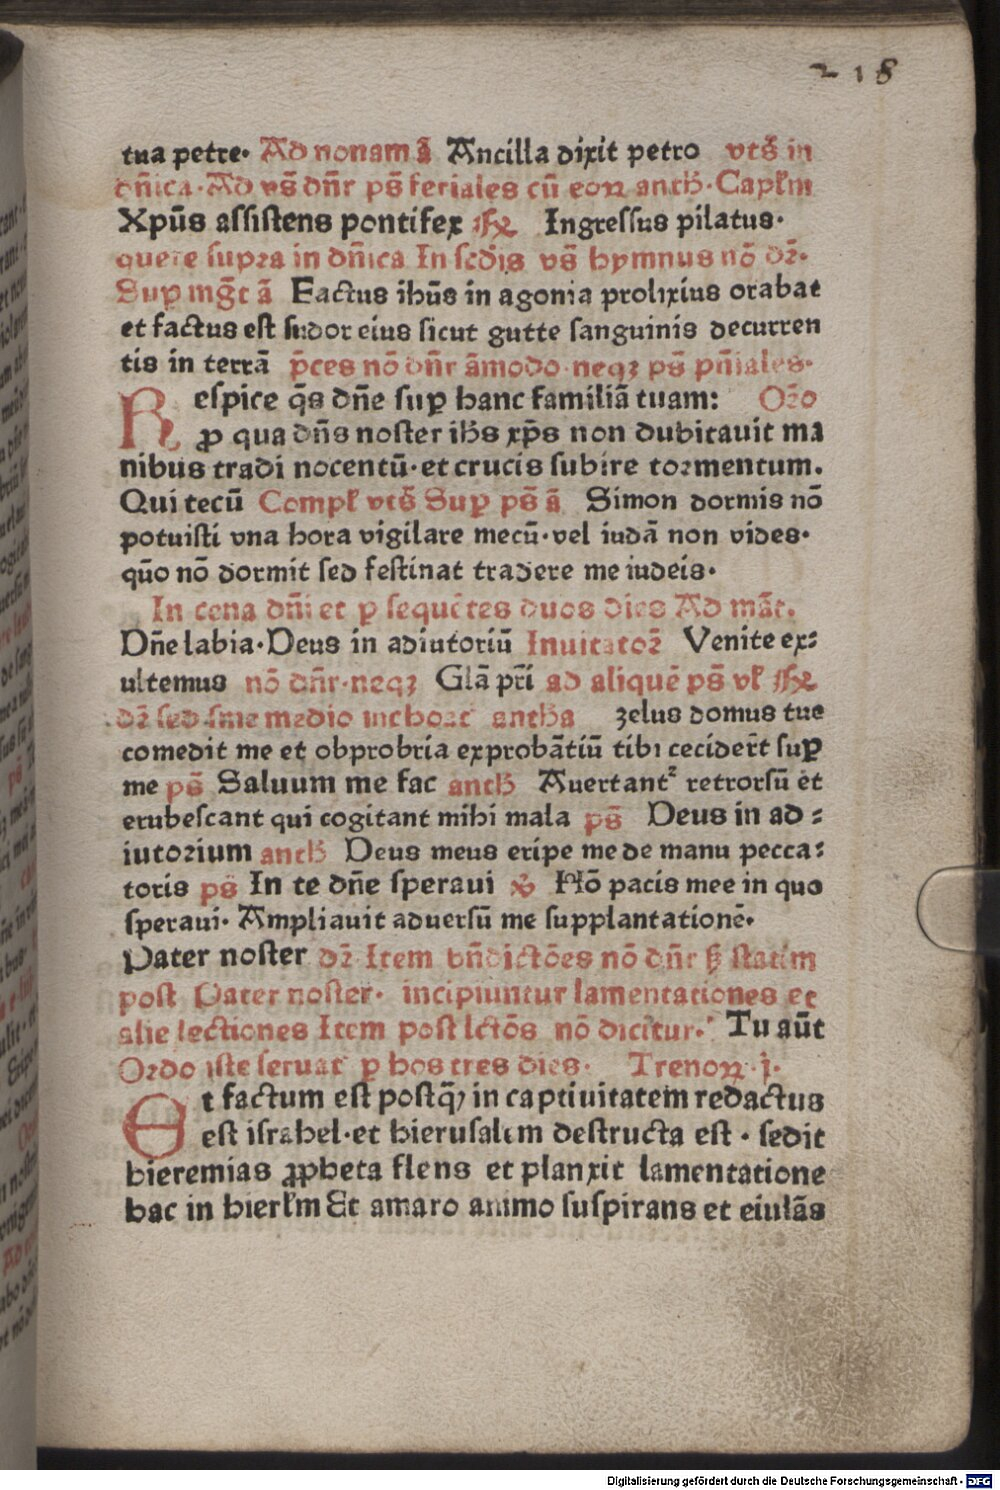 218
tua petre. Ad nonam ã Ancilla dixit petro vts̃ in
dñica. Ad vs̃ dñr ps̃ feriales cũ eoꝝ antħ. Capl̃m
Xpũs assistens pontifex ℟ Ingressus pilatus.
quere supra in dñica In sedĩs vs̃ hymnus nõ dꝛ̃.
Suꝑ mg̃t ã Factus ihũs in agonia prolixius orabat
et factus est sudor eius sicut gutte sanguinis decurren
tis in terrã p̃ces nõ dñr ãmodo neqꝫ ps̃ pñiales.
Respice q̃s dñe suꝑ hanc familiã tuam: Oꝛ̃o
ꝓ qua dñs noster ihs̃ xp̃s non dubitauit ma
nibus tradi nocentũ. et crucis subire toꝛmentum.
Qui tecũ Compl̃ vts̃ Suꝑ ps̃ ã Simon dormis nõ
potuisti vna hora vigilare mecũ. vel iudã non vides.
qũo nõ dormit sed festinat tradere me iudeis.
In cena dñi et ꝑ sequẽtes duos dies Ad mãt.
Dñe labia. Deus in adiutoriũ Inuitatoꝛ̃ Venite ex:
ultemus nõ dñr. neqꝫ Glã pr̃i ad aliquẽ ps̃ vl̃ ℟
dꝛ̃ sed sine medio inchoat̃ antħa zelus domus tue
comedit me et obprobria exprobãtiũ tibi cecider̃t suꝑ
me ps̃ Saluum me fac antħ Auertantꝛ retrorsũ et
erubescant qui cogitant mihi mala ps̃ Deus in ad:
iutoꝛium antħ Deus meus eripe me de manu pecca:
toris ps̃ In te dñe speraui ℣ Hõ pacis mee in quo
speraui. Ampliauit aduersũ me supplantationẽ.
Pater noster dꝛ̃ Item bñdictões nõ dñr sꝫ statim
post Pater noster. incipiuntur lamentationes et
alie lectiones Item post lc̃tões nõ dicitur. Tu aũt
Oꝛdo iste seruat̃ ꝑ hos tres dies. Trenoꝝ. j.
Et factum est postqꝫ̃ in captiuitatem redactus
est israhel. et hierusalem destructa est. sedit
hieremias ꝓpheta flens et planxit lamentatione
hac in hierl̃m Et amaro animo suspirans et eiulãs
Digitalisierung gefördert durch die Deutsche Forschungsgemeinschaft - DFG